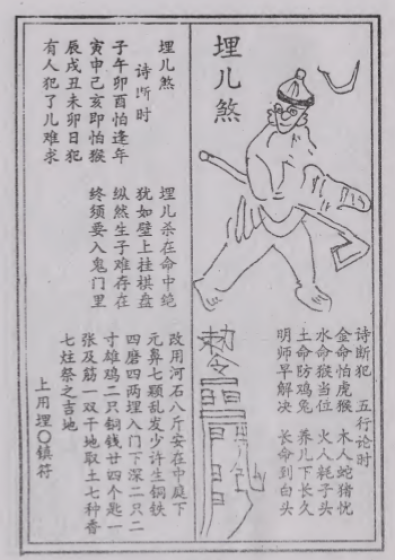 埋儿煞
诗断犯 五行论时
金命怕虎猴 木人蛇猪忧
水命猴当位 火人耗子头
土命防鸡兔 养儿下长久
明师早解决 长命到白头
勅令
埋儿煞
诗断时
子午卯酉怕逢年
寅申己亥即怕猴
辰戌丑未卯日犯
有人犯了儿难求
埋儿杀在命中绝
犹如壁上挂棋盘
纵然生子难存在
终须要入鬼门里
改用河石八斤安在中庭下
元鼻七颗乱发少许生铜铁
四磨四两埋入门下深二只二
寸雄鸡二只铜钱廿四个匙一
张及筋一双干地取土七种香
七炷祭之吉地
上用埋〇镇符